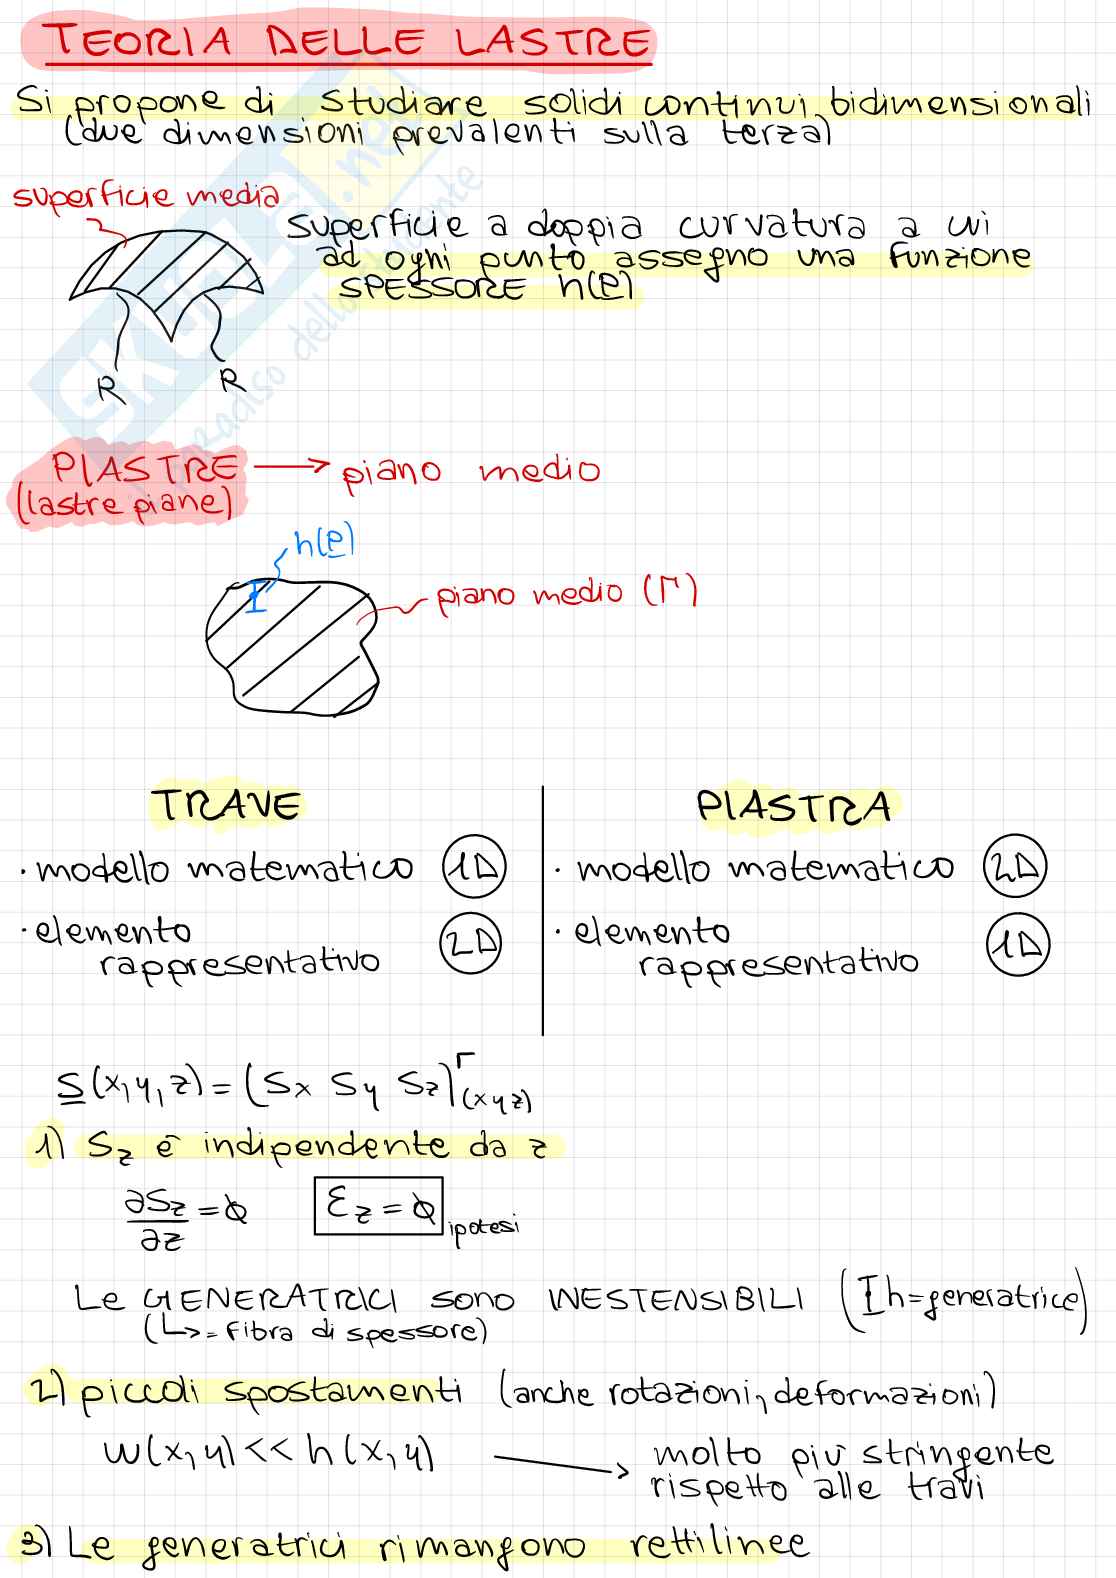 TEORIA DELLE LASTRE
Si propone di studiare solidi continui bidimensionali
(due dimensioni prevalenti sulla terza)
superficie media
superficie a doppia curvatura a cui
ad ogni punto assegno una funzione
SPESSORE h(P)
R R
PIASTRE → piano medio
(lastre piane)
h(P)
piano medio (Γ)
TRAVE
· modello matematico 1D
· elemento
rappresentativo 2D
PIASTRA
· modello matematico 2D
· elemento
rappresentativo 1D
S(x,y,z) = (Sx Sy Sz)ᵀ(xyz)
1) Sz è indipendente da z
∂Sz/∂z = ∅ εz = ∅ ipotesi
Le GENERATRICI SONO INESTENSIBILI (I h=generatrice)
(↳ = fibra di spessore)
2) piccoli spostamenti (anche rotazioni, deformazioni)
w(x,y) << h(x,y) → molto più stringente
rispetto alle travi
3) Le generatrici rimangono rettilinee
SKUOLA.net
il paradiso dello studente